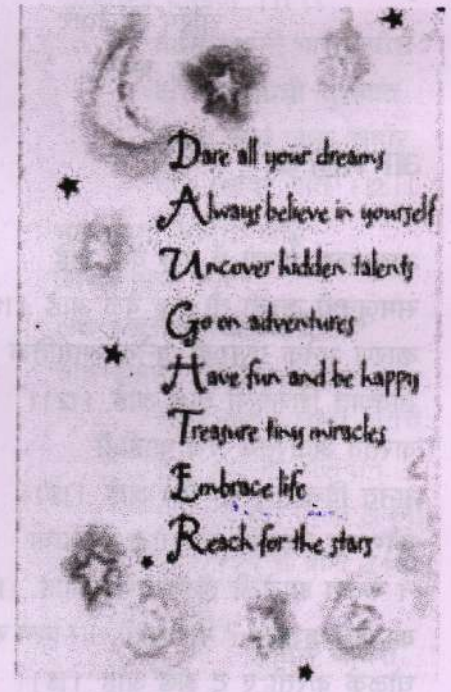 Dare all your dreams
Always believe in yourself
Uncover hidden talents
Go on adventures
Have fun and be happy
Treasure tiny miracles
Embrace life
Reach for the stars